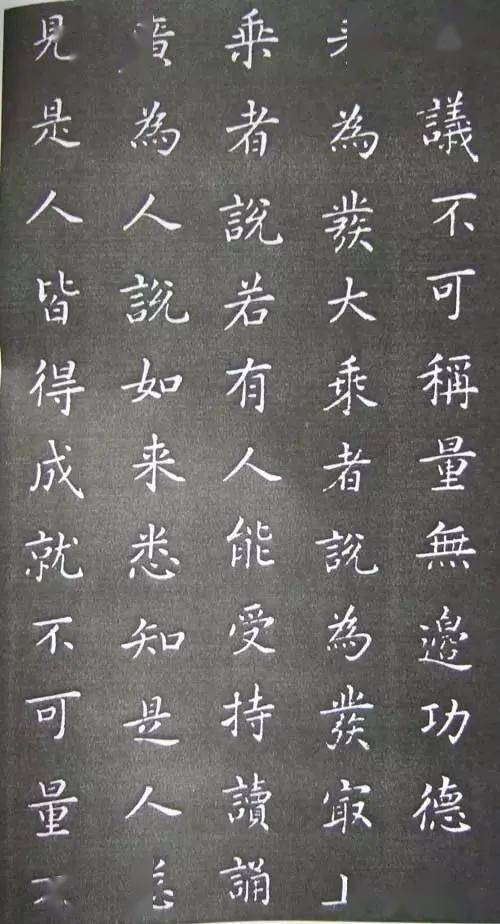 議不可稱量無邊功德
為發大乘者說為發㝡
乘者說若有人能受持讀誦
為人說如来悉知是人
見是人皆得成就不可量